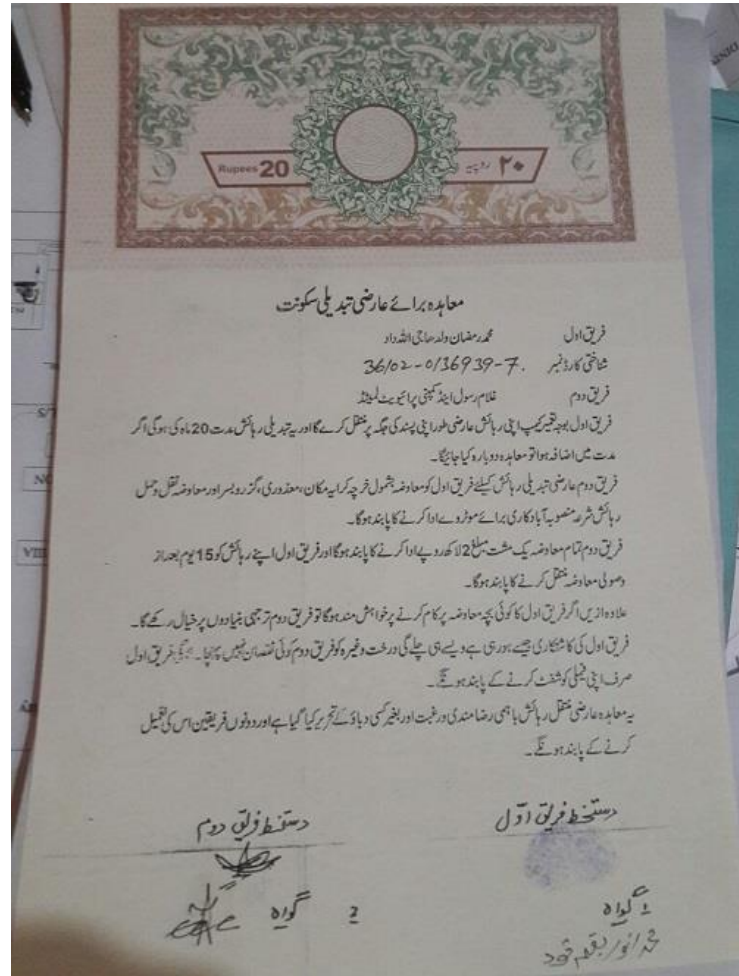 Rupees 20
۲۰ روپیہ
معاہدہ برائے عارضی تبدیلی سکونت
فریق اول محمد رمضان ولد حاجی اللہ داد
شناختی کارڈ نمبر 36102-0136939-7.
فریق دوم غلام رسول اینڈ کمپنی پرائیویٹ لمیٹڈ
فریق اول بوجہ تعمیر کیمپ اپنی رہائش عارضی طور اپنی پسند کی جگہ پر منتقل کرے گا اور یہ تبدیلی رہائش مدت 20 ماہ کی ہوگی اگر
مدت میں اضافہ ہوا تو معاہدہ دوبارہ کیا جائیگا۔
فریق دوم عارضی تبدیلی رہائش کیلئے فریق اول کو معاوضہ بشمول خرچہ کرایہ مکان، معذوری، گزر وبسر اور معاوضہ نقل وحمل
رہائش شرعہ منصوبہ آبادکاری برائے موٹروے ادا کرنے کا پابند ہوگا۔
فریق دوم تمام معاوضہ یک مشت مبلغ 2 لاکھ روپے ادا کرنے کا پابند ہوگا اور فریق اول اپنے رہائش کو 15 یوم بعد از
وصولی معاوضہ منتقل کرنے کا پابند ہوگا۔
علاوہ ازیں اگر فریق اول کا کوئی بچہ معاوضہ پر کام کرنے پر خواہش مند ہوگا تو فریق دوم ترجیحی بنیادوں پر خیال رکھے گا۔
فریق اول کی کاشتکاری جیسے ہورہی ہے ویسے ہی چلے گی درخت وغیرہ کو فریق دوم کوئی نقصان نہیں پہنچا۔ فریق اول
صرف اپنی فیملی کو شفٹ کرنے کے پابند ہونگے۔
یہ معاہدہ عارضی منتقل رہائش باہمی رضامندی ورغبت اور بغیر کسی دباؤ کے تحریر کیا گیا ہے اور دونوں فریقین اس کی تعمیل
کرنے کے پابند ہونگے۔
دستخط فریق اوّل
دستخط فریق دوم
1 گواہ
2 گواہ
محمد انور بقلم خود